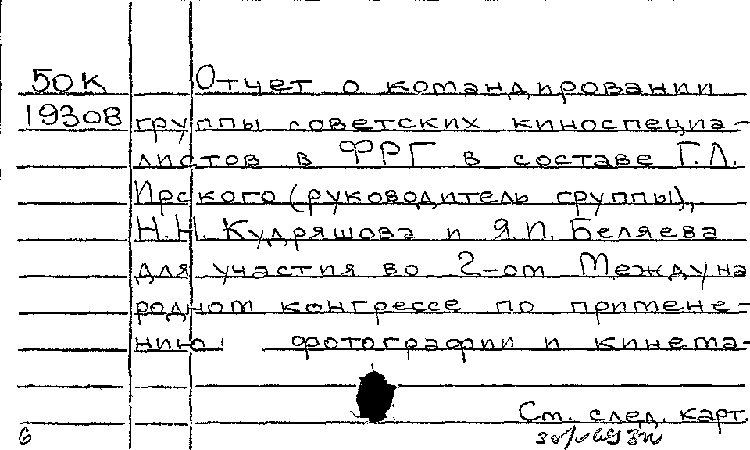 50К Отчет о командировании
19308 группы советских киноспециа-
листов в ФРГ в составе Г.Л.
Ирского (руководитель группы),
Н.Н. Кудряшова и Я.П. Беляева
для участия во 2-ом Междуна
родном конгрессе по примене-
нию фотографии и кинема-
См. след. карт.
6